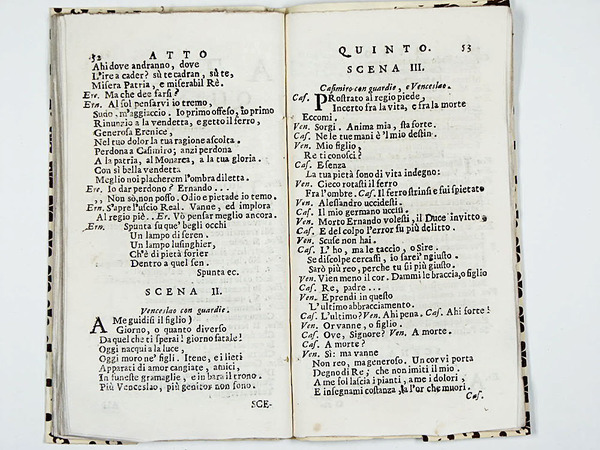 52 ATTO
Ahi dove andranno, dove
L'ire a cader? sù te cadran, sù te,
Misera Patria, e miserabil Rè.
Ere. Ma che dee farsi?
Ern. Al sol pensarvi io tremo,
Sudo, m'aggiaccio. Io primo offeso, io primo
Rinunzio a la vendetta, e getto il ferro,
Generosa Erenice,
Nel tuo dolor la tua ragione ascolta.
Perdona a Casimiro; anzi perdona
A la patria, al Monarca, a la tua gloria.
Con sì bella vendetta
Meglio noi placherem l'ombra diletta.
Ere. Io dar perdono? Ernando...
,, Non sò, non posso. Odio e pietade io temo.
Ern. S'apre l'uscio Real. Vanne, ed implora
Al regio piè.. Er. Vò pensar meglio ancora.
Ern. Spunta su que' begli occhi
Un lampo di seren.
Un lampo lusinghier,
Ch'è di pietà forier
Dentro a quel sen.
Spunta ec.
SCENA II.
Venceslao con guardie.
A Me guidisi il figlio)
Giorno, o quanto diverso
Da quel che ti sperai! giorno fatale!
Oggi nacqui a la luce,
Oggi moro ne' figli. Itene, ei lieti
Apparati di amor cangiate, amici,
In funeste gramaglie, e in bara il trono.
Più Venceslao, più genitor non sono.
SCE-
QUINTO. 53
SCENA III.
Casimiro con guardie, e Venceslao.
Cas. PRostrato al regio piede,
Incerto fra la vita, e fra la morte
Eccomi.
Ven. Sorgi. Anima mia, sta forte.
Cas. Ne le tue mani è 'l mio destin.
Ven. Mio figlio,
Re ti conosci?
Cas. E senza
La tua pietà sono di vita indegno:
Ven. Cieco rotasti il ferro
Fra l'ombre. Cas. Il ferro strinsi e fui spietato
Ven. Alessandro uccidesti.
Cas. Il mio germano uccisi.
Ven. Morto Ernando volesti, il Duce invitto
Cas. E del colpo l'error fu più delitto.
Ven. Scuse non hai.
Cas. L' ho, ma le taccio, o Sire.
Se discolpe cercassi, io sarei 'ngiusto.
Sarò più reo, perche tu sii più giusto.
Ven. Vien meno il cor. Dammi le braccia, o figlio
Cas. Re, padre...
Ven. E prendi in questo
L'ultimo abbracciamento.
Cas. L'ultimo? Ven. Ahi pena. Cas. Ahi sorte!
Ven. Or vanne, o figlio.
Cas. Ove, Signore? Ven. A morte.
Cas. A morte?
Ven. Sì: ma vanne
Non reo, ma generoso. Un cor vi porta
Degno di Re; che non imiti il mio.
A me sol lascia i pianti, a me i dolori,
E insegnami costanza, a l'or che muori.
Cas.